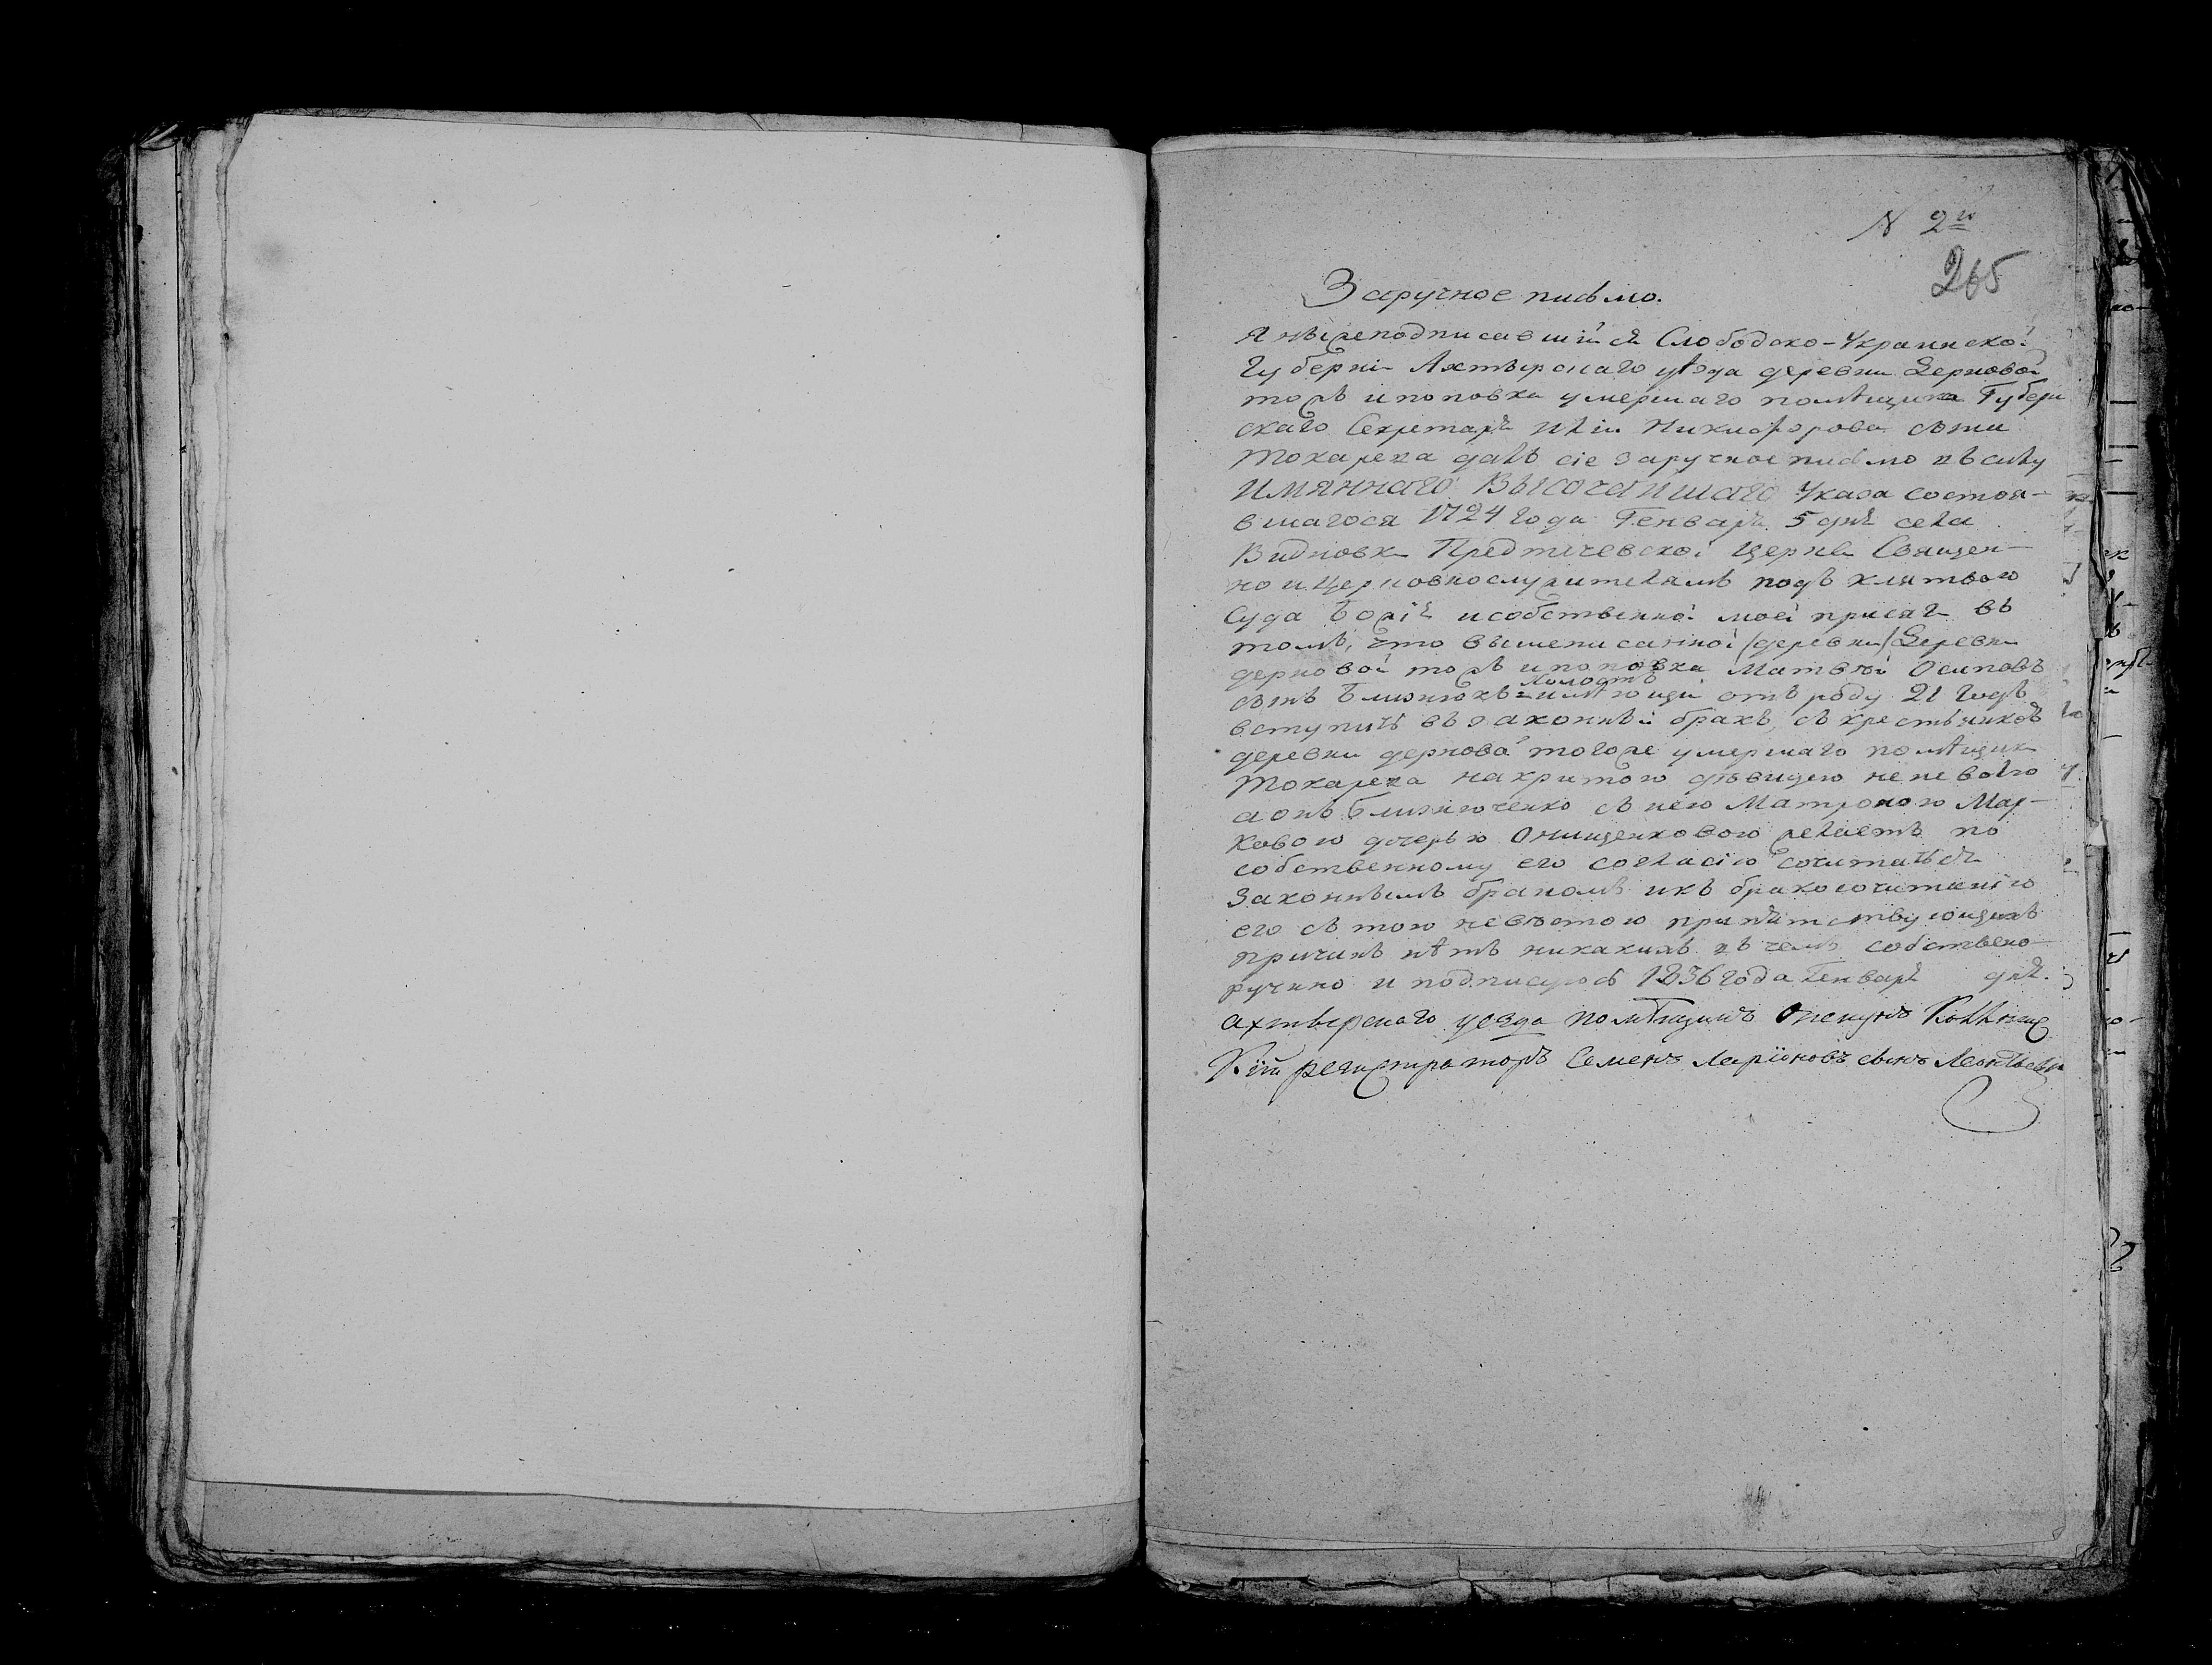 N 2й
265
Заручное письмо.
Я нѣжеподписавшiйся Слободско-Украинской
Губернiи Ахтырскаго уѣзда деревни Дерновой
тожъ и поповки умершаго помѣщика Губерн
скаго Секретаря Никифорова сына
Токарева далъ сiе заручное письмо въ силу
ИМЯННАГО ВЫСОЧАЙШАГО Указа состоя-
вшагося 1724 года Генваря 5 дня села
Видновки Предтечевской Церкви Священ-
но и Церковнослужителямъ подъ клятвою
Суда Божiя и собственной моей присяги въ
томъ, что вышеписанной (деревни) Деревни
дерновой тожъ и поповки Матвѣй Осиповъ
сынъ Близнюкъ Холостъ имѣющiй отъ роду 21 годъ
вступить въ законный бракъ, съ крестьянкою
деревни дерновой тогоже умершаго помѣщика
Токарева дѣвицею не неволею
а онъ Близнюченко съ нею Матроною Мар-
ковою дочерью Онищенковою желаетъ по
собственному его согласiю сочитаться
Законнымъ бракомъ и къ бракосочитанiю
его съ тою невѣстою припятствующихъ
причинъ нѣтъ никакихъ въ чемъ собствено-
ручно и подписуюсь 1836 года Генваря дня.
Ахтырскаго уезда помѣщикъ Опекунъ Коллежс
кiй регистраторъ Семенъ Ларiоновъ сынъ Леонтьевъ